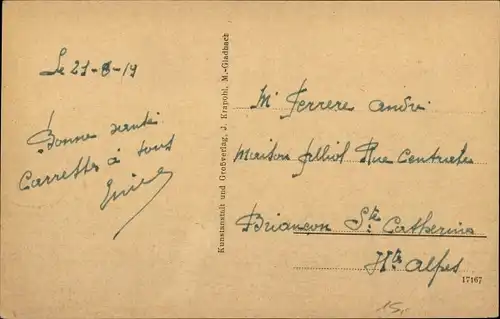 Le 21-8-19
Bonne santé
Carrettes à tous
Kunstanstalt und Großverlag, J. Krapohl, M.-Gladbach
Mr Ferrere André
Maison Rue Centrale
Briançon Ste Catherine
Htes Alpes
17167
15,-